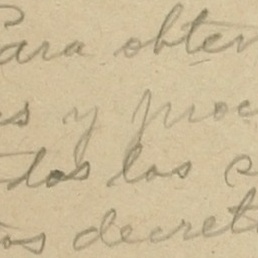 Para obten
es y proc
todos los
tos decret